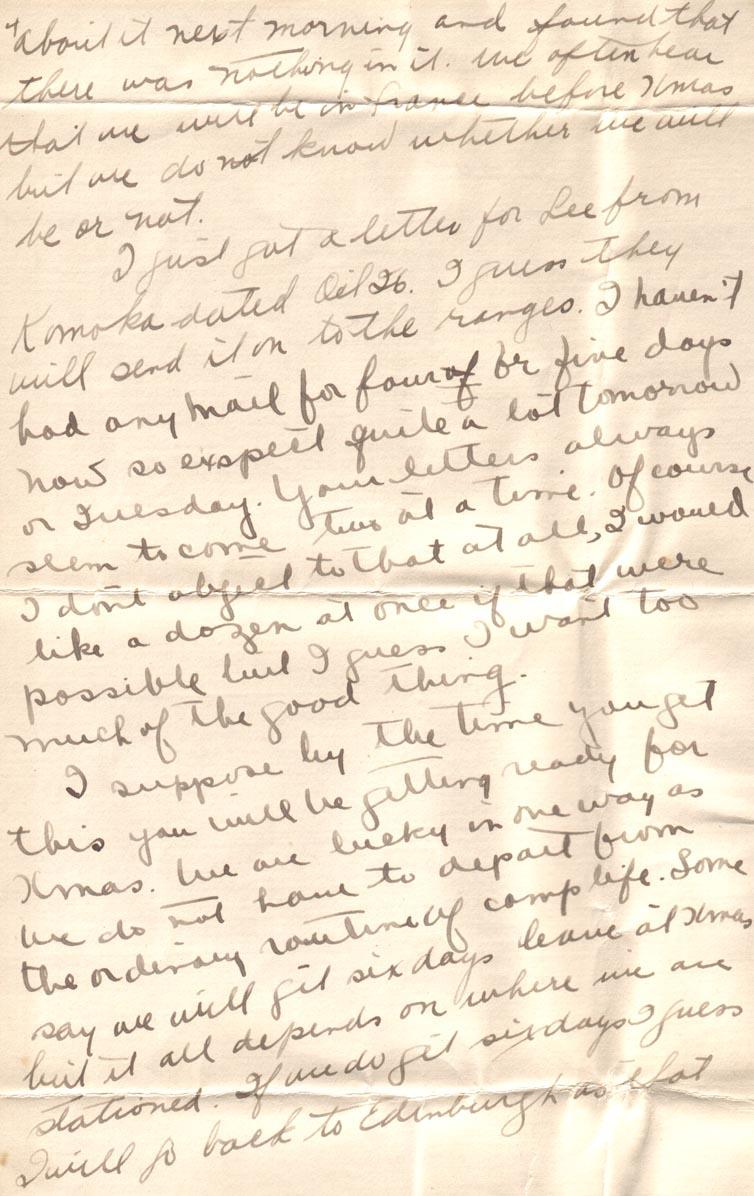 "about it next morning and found that
there was nothing in it. We often hear
that we will be in France before Xmas
but we do not know whether we will
be or not.
I just got a letter for Lee from
Komoka dated Oct 26. I guess they
will send it on to the ranges. I haven't
had any mail for four or five days
now so expect quite a lot tomorrow
or Tuesday. Your letters always
seem to come two at a time. Of course
I don't object to that at all, I would
like a dozen at once if that were
possible but I guess I want too
much of the good thing.
I suppose by the time you get
this you will be getting ready for
Xmas. We are lucky in one way as
we do not have to depart from
the ordinary routine of camp life. Some
say we will get six days leave at Xmas
but it all depends on where we are
stationed. If we do get six days I guess
I will go back to Edinburgh as that